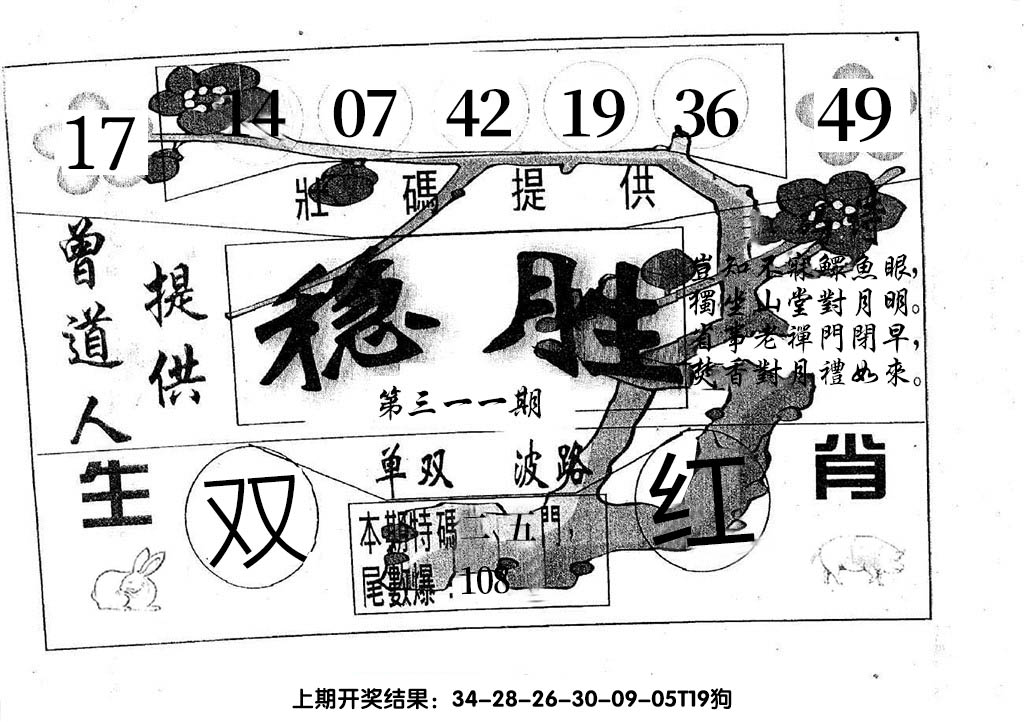 17 14 07 42 19 36 49
壯碼提供
曾道人
提供
稳胜
第三一一期
豈知不寐鰥魚眼，
獨坐山堂對月明。
省事老禪門閉早，
香對月禮如來。
生
肖
单双 波路
双
红
本期特碼二、五門，
尾數爆：108
上期开奖结果：34-28-26-30-09-05T19狗